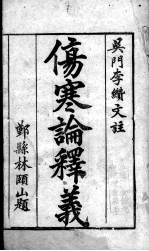 吳門李纘文註
傷寒論釋義
鄞縣林頤山題